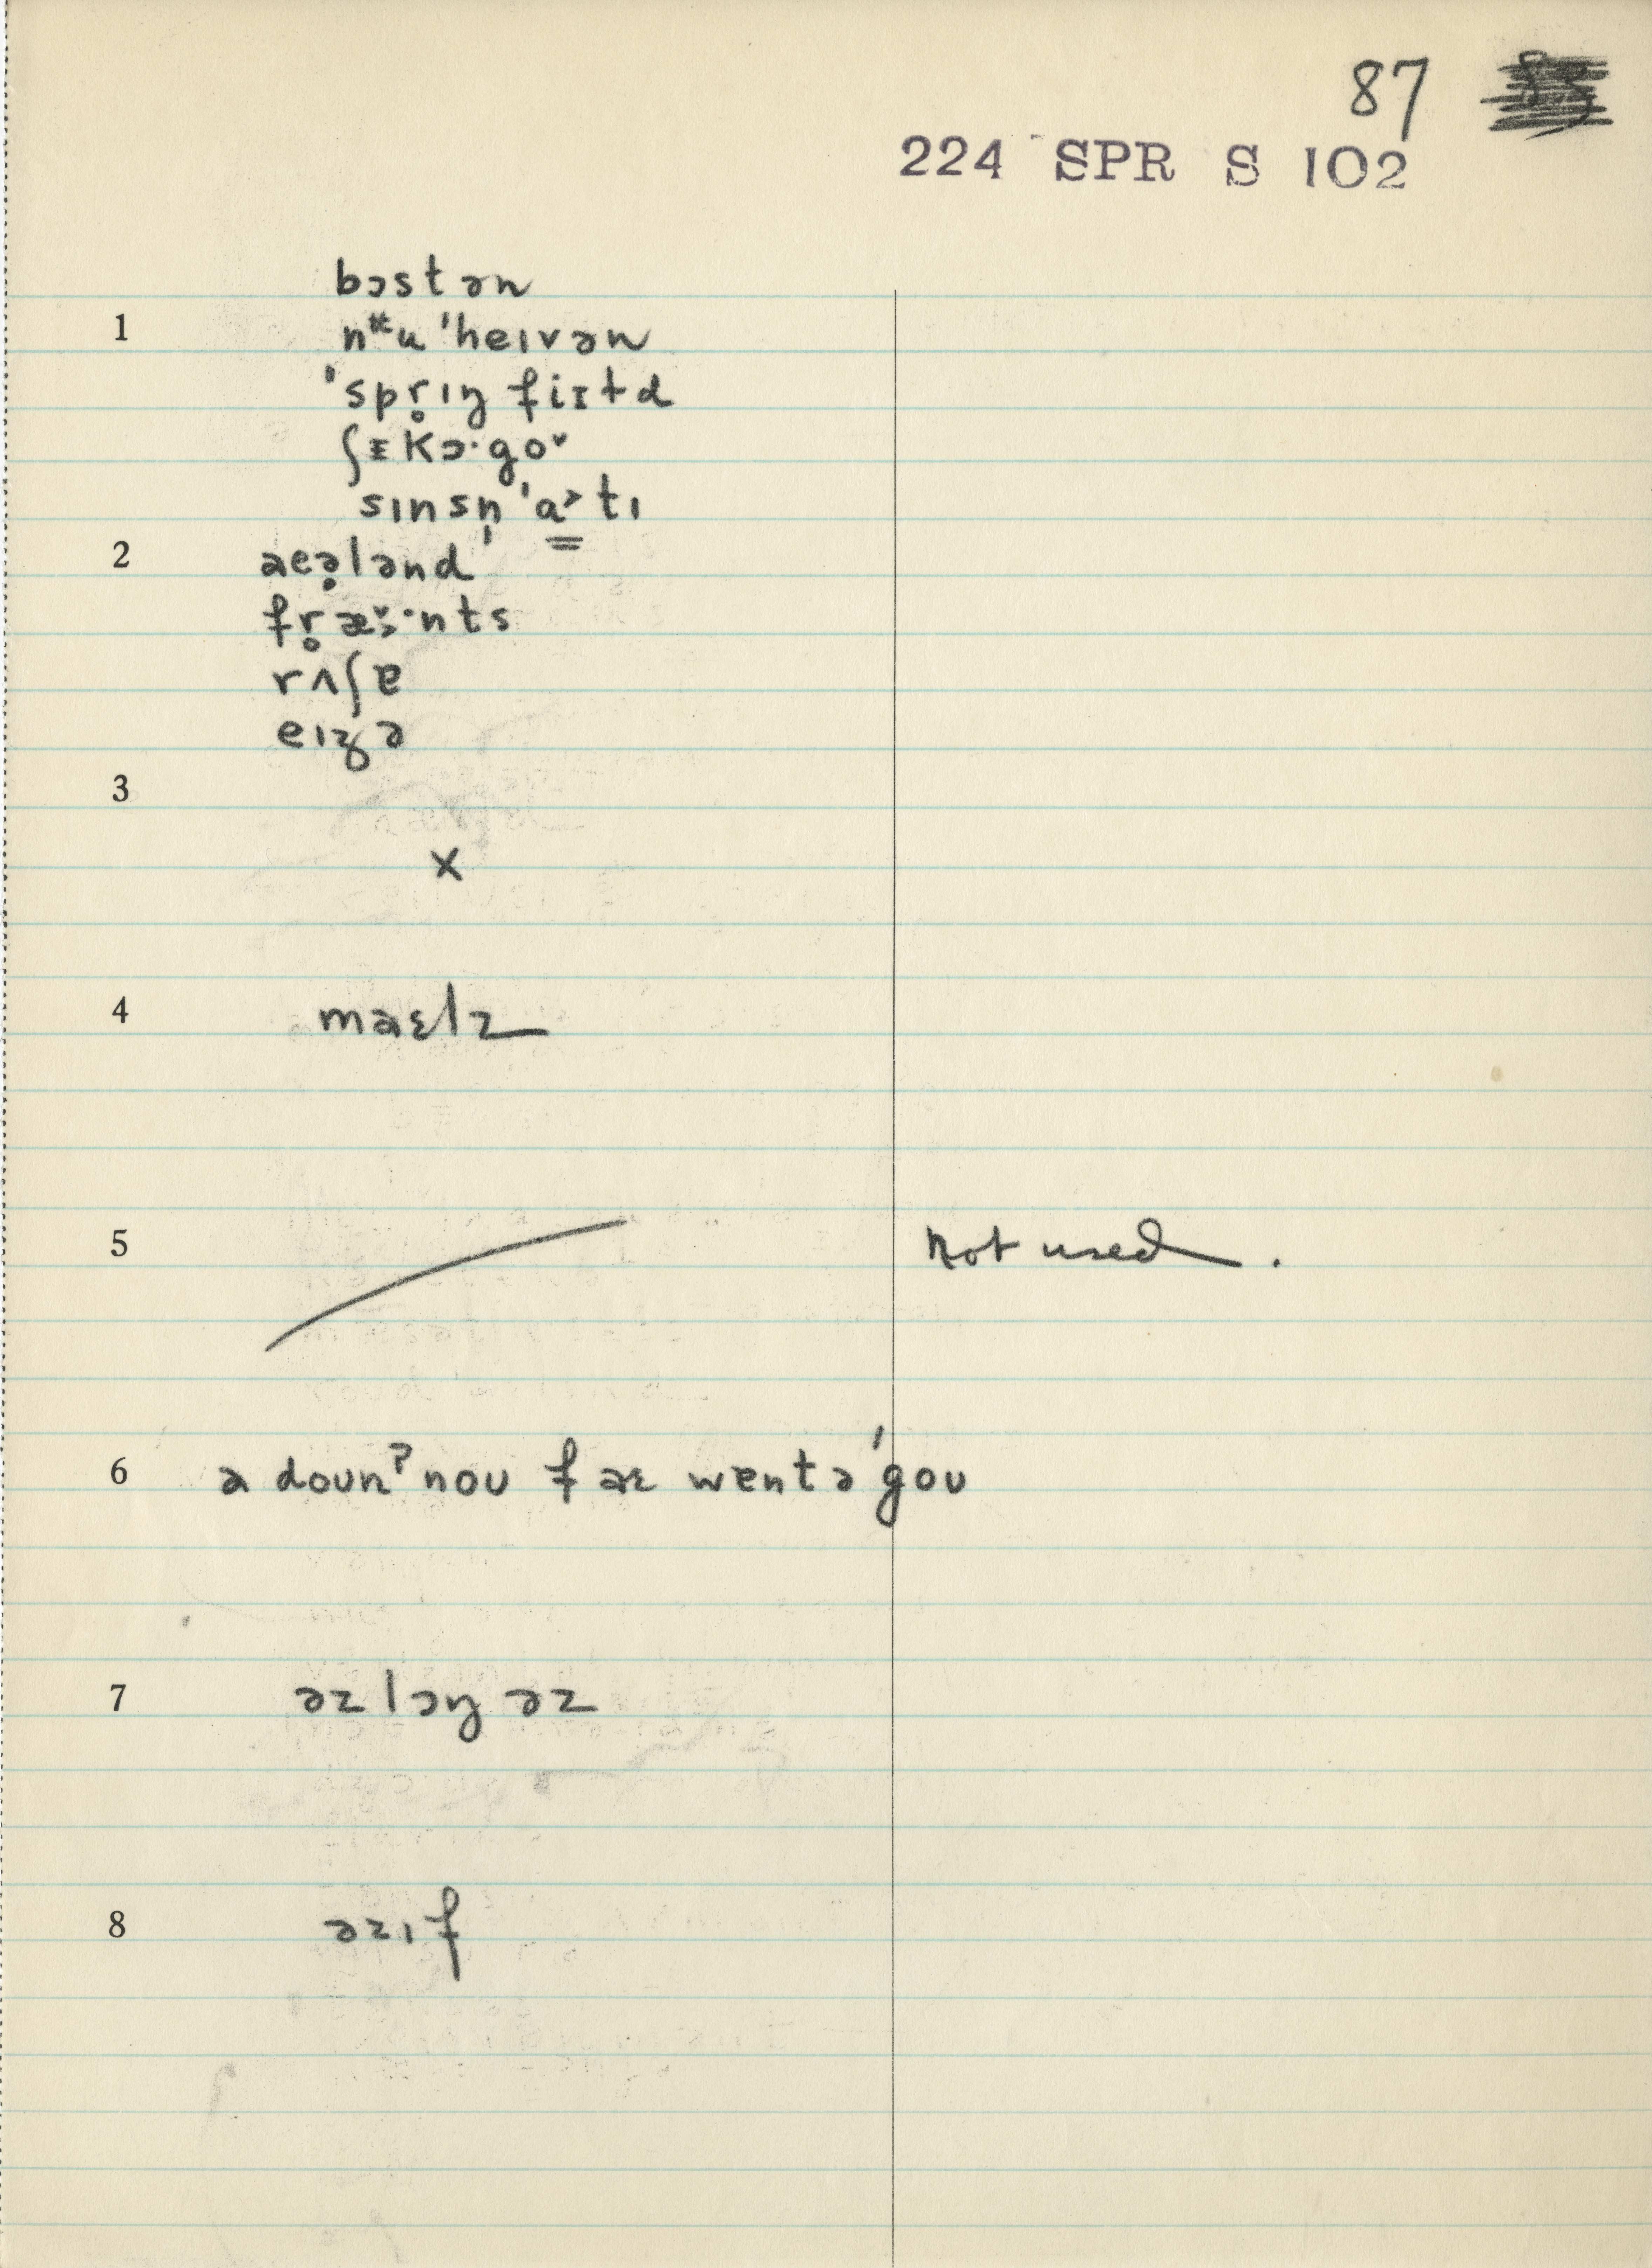 87
224 SPR S 102
bɔstən
1
nᵻu 'heɪvən
'spr̥ɪŋ fiɪɫd
ʃɪkɔ·goᵛ
sɪnsn̩'a˃tɪ
2
aeə̥lənd
fr̥æ̌˃·nts
rʌʃɐ
eɪʒə
3
x
4
maɛlz
5
not used.
6
a doʊnˀnoʊ f aɛ wɐntə'goʊ
7
əz lɔŋ əz
8
əzɪf